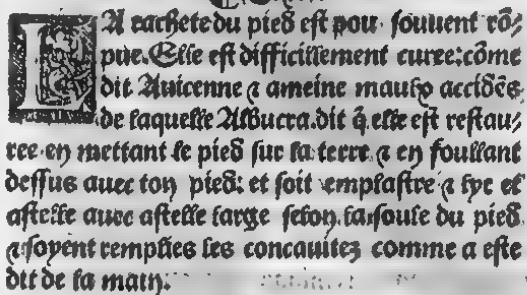 LA rachete du pied est pou souuent rõ/
pue. Elle est difficillement curee: cõme
dit Auicenne ⁊ ameine maulx accidẽs
de laquelle Albucra. dit q̃ elle est restau/
ree en mettant le pied sur la terre ⁊ en foullant
dessus auec ton pied: et soit emplastre ⁊ lye et
astelle auec astelle large selon la soule du pied
⁊ soyent remplies les concauitez comme a este
dit de la main.